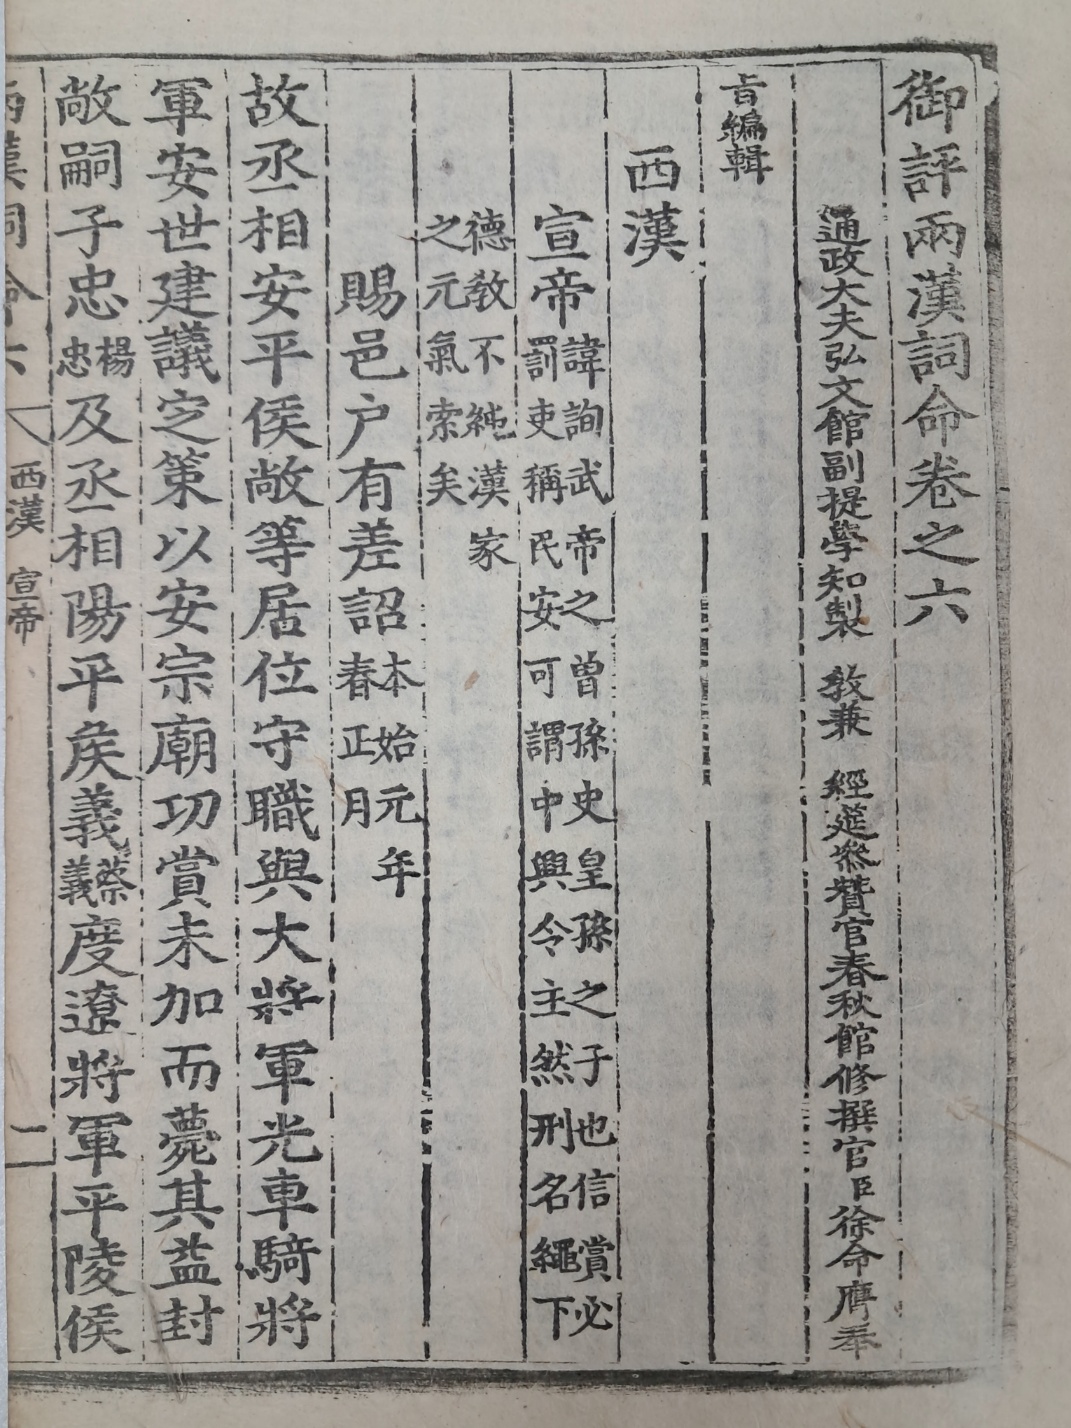 御評兩漢詞命卷之六
通政大夫弘文館副提學知製 敎兼 經筵叅贊官春秋館修撰官臣徐命膺奉
旨編輯
西漢
宣帝 諱詢武帝之曾孫史皇孫之子也信賞必
罰吏稱民安可謂中興令主然刑名繩下
德敎不純漢家
之元氣索矣
賜邑户有差詔 本始元年
春正月
故丞相安平侯敞等居位守職與大將軍光車騎將
軍安世建議定策以安宗廟功賞未加而薨其益封
敞嗣子忠 楊忠 及丞相陽平侯義 蔡義 度遼將軍平陵侯
西漢詞命六 西漢 宣帝 一